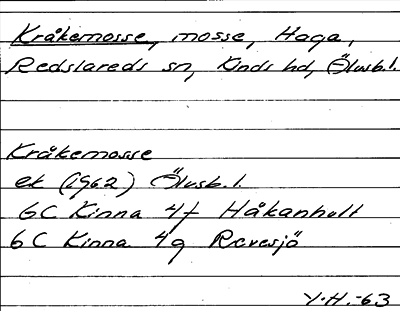 Kråkemosse, mosse, Haga,
Redslareds sn, Kinds hd, Älvsb.l.
Kråkemosse
ek (1962) Älvsb.l.
6C Kinna 4f Håkanhult
6C Kinna 4g Ravesjö
Y.H.-63